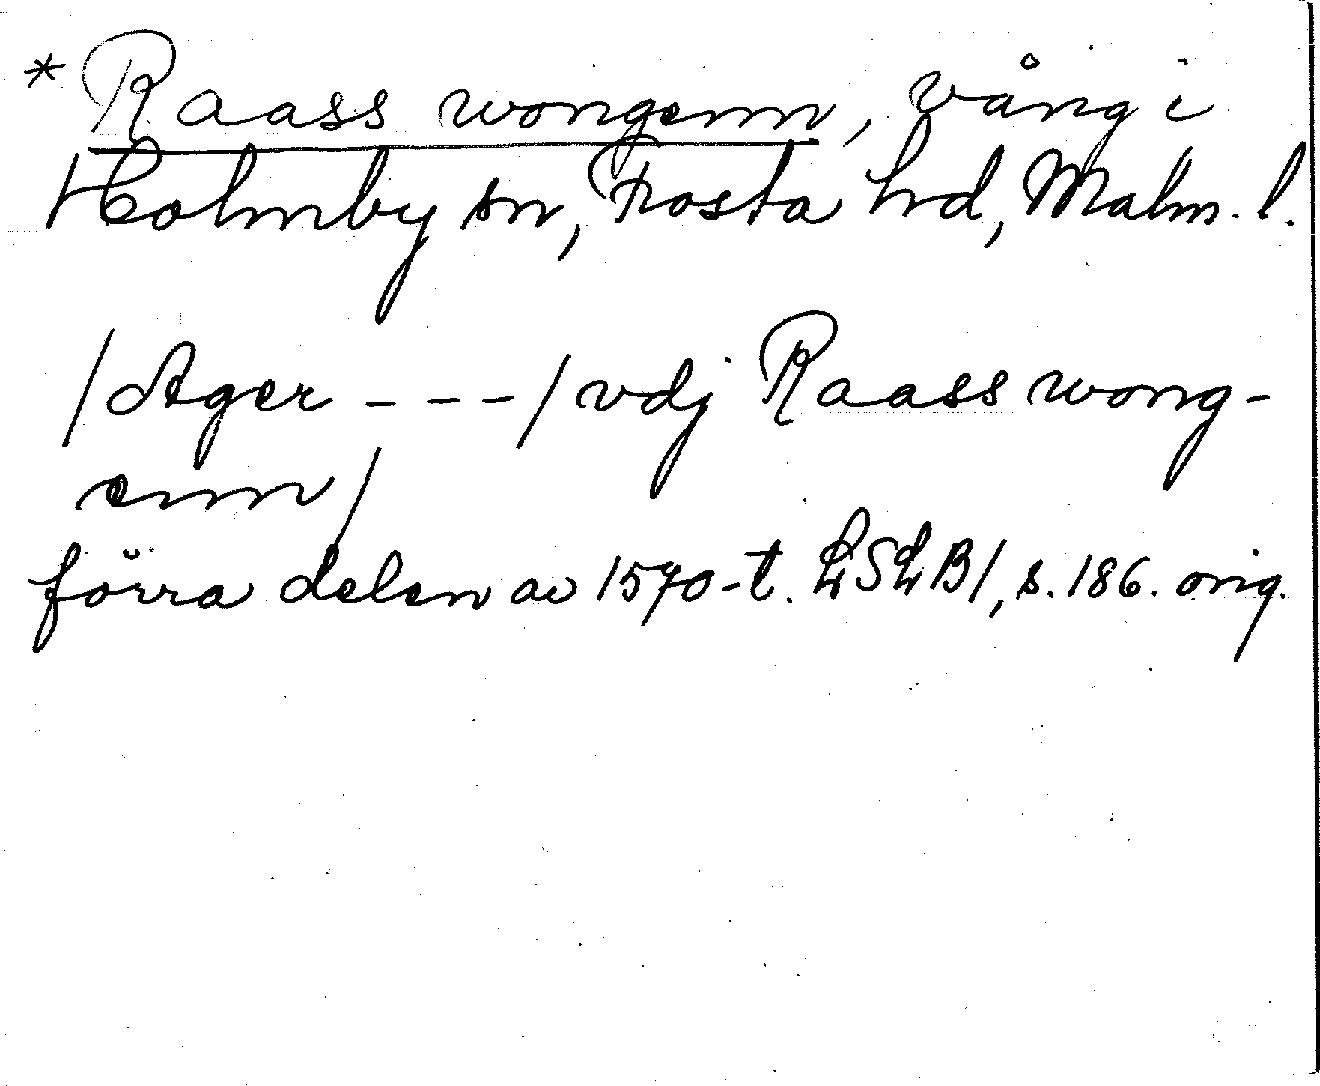 * Raass wongenn, vång i
Holmby sn, Frosta hd, Malm. l.
/Ager - - -/ vdj Raass wong-
enn/
förra delen av 1570-t. LSLB1, s. 186. orig.